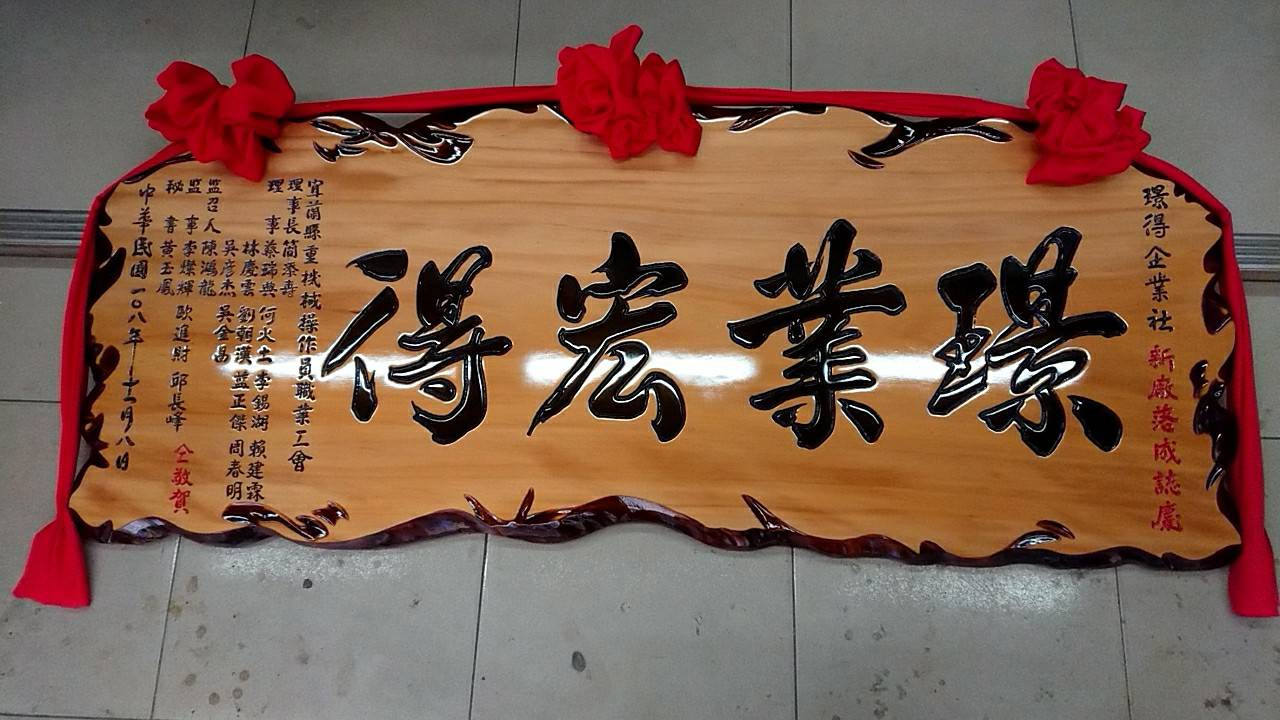 璟得企業社 新廠落成誌慶
璟業宏得
宜蘭縣重機械操作員職業工會
理事長 簡添壽
理事 蔡瑞典 何火土 李錫湖 賴建霖
林慶雲 劉朝漢 藍正傑 周春明
吳彥杰 吳金昌
監召人 陳鴻龍
監事 李燦輝 歐進財 邱長峰
秘書 黃玉鳳 仝敬賀
中華民國一〇八年十二月八日